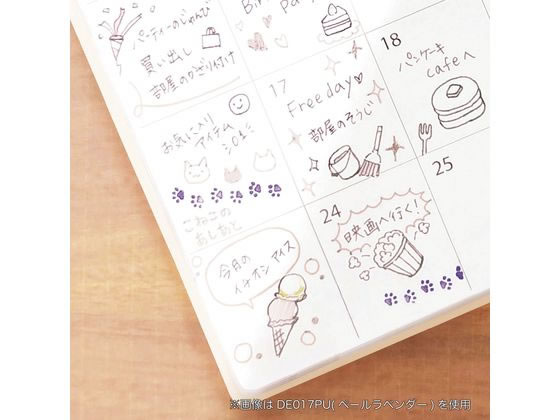 パーティーのじゅんび
買い出し
部屋のかざり付け
17
Freeday♡
部屋のそうじ
18
パンケーキ
cafeへ
お気に入り
アイテム
こねこの
あしあと
24
映画へ行く!
25
今月の
イチオシアイス
※画像は DE017PU(ペールラベンダー)を使用